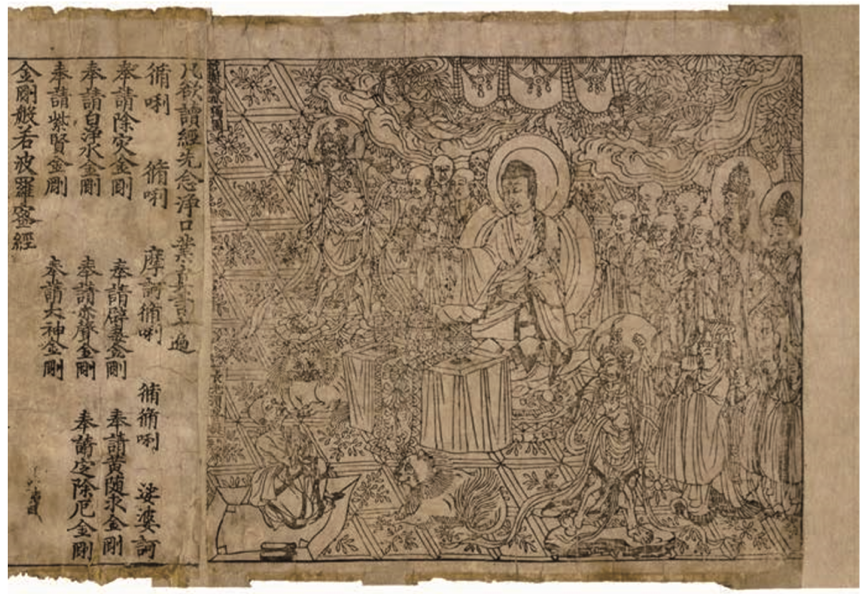 凡欲讀經先念淨口業真言一遍
脩唎　脩唎　摩訶脩唎　脩脩唎　娑婆訶
奉請除灾金剛　奉請辟毒金剛　奉請黃隨求金剛
奉請白淨水金剛　奉請赤聲金剛　奉請定除厄金剛
奉請紫賢金剛　奉請大神金剛
金剛般若波羅蜜經